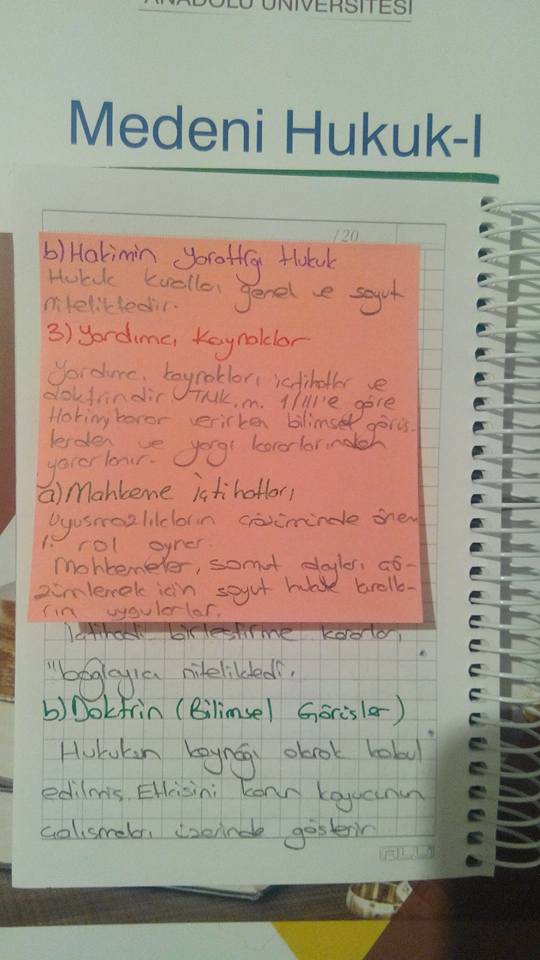 ANADOLU ÜNİVERSİTESİ
Medeni Hukuk-I
/20
b) Hakimin Yarattığı Hukuk
Hukuk kuralları genel ve soyut
niteliktedir.
3) Yardımcı Kaynaklar
Yardımcı kaynakları içtihatlar ve
doktrindir TMK.m. 1/III'e göre
Hakim karar verirken bilimsel görüş-
lerden ve yargı kararlarından
yararlanır.
a) Mahkeme İçtihatları
Uyuşmazlıkların çözümünde önem
li rol oynar.
Mahkemeler, somut olayları çö-
zümlemek için soyut hukuk kuralla-
rın uygularlar.
İçtihadı birleştirme kararları
"bağlayıcı niteliktedi.
b) Doktrin (Bilimsel Görüşler)
Hukukun kaynağı olarak kabul
edilmiş. Etkisini kanun koyucunun
çalışmaları üzerinde gösterir